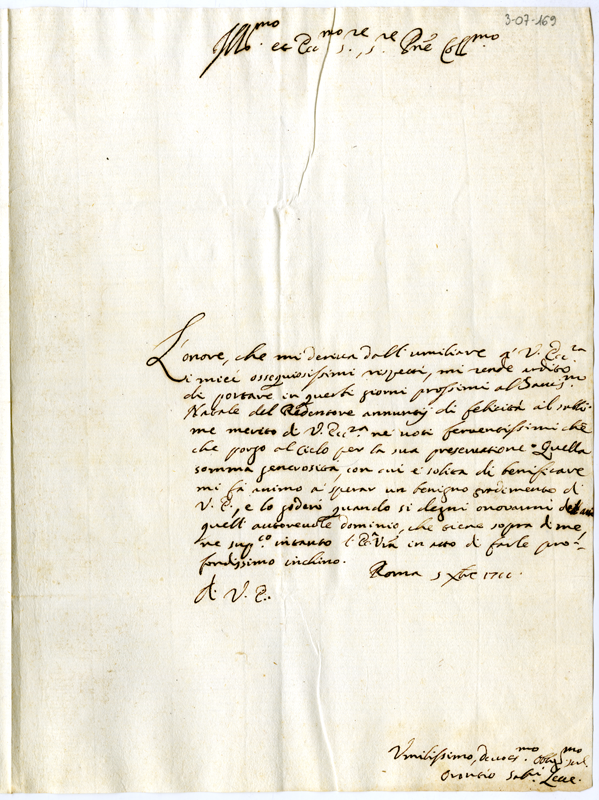 3-07-169
Ill.mo et Ecc.mo s.re, s.re P.ne Coll.mo
L'onore, che mi deriva dall'umiliare à V. Ecc.za
i miei ossequiosissimi rispetti, mi rende ardito
di portare in questi giorni prossimi al Santis.mo
Natale del Redentore annuntij di felicità al subli-
me merito di V. Ecc.za ne voti ferventissimi che
che porgo al Cielo per la sua preservatione. Quella
somma generosità, con cui è solita di beneficare
mi fà animo à sperar un benigno gradimento di
V. E., e lo goderò quando si degni onorarmi
quell'autorevole dominio, che tiene sopra di me,
ne sup.co intanto l'E. V.ra in atto di farle pro-
fondissimo inchino.
Roma 5 Xbre
A V. E.
Umilissimo, devotis.mo Oblig.mo
Oronzio